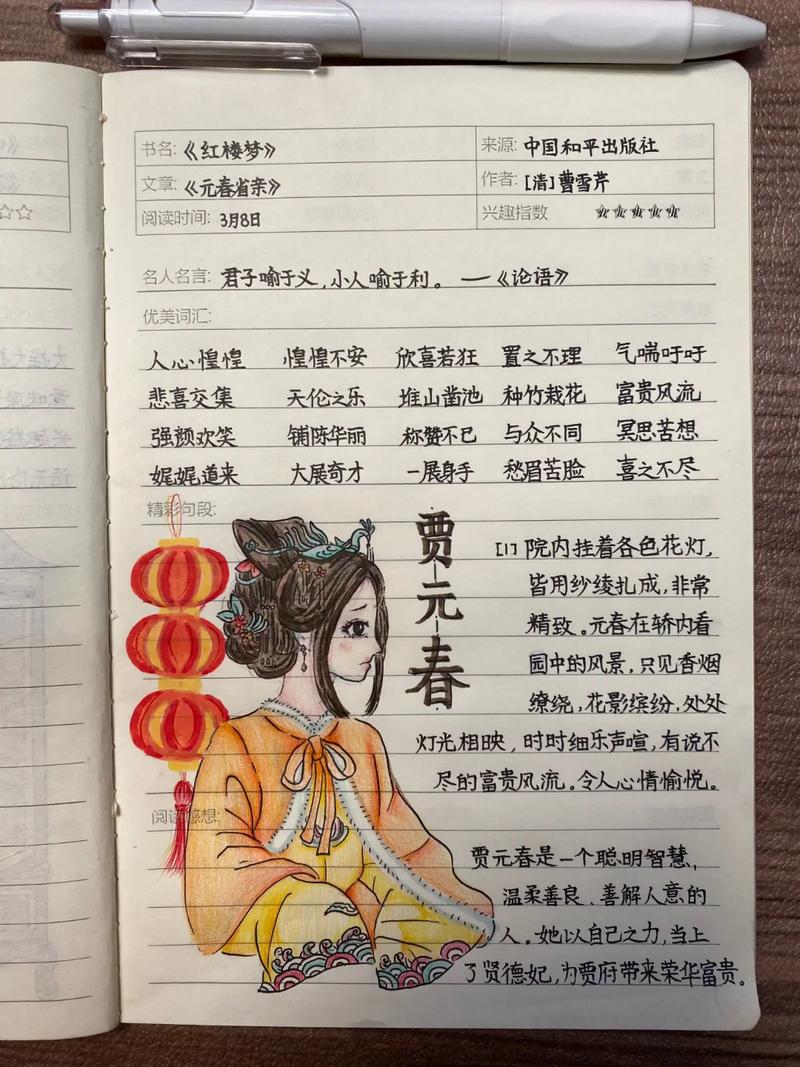 书名:《红楼梦》 来源: 中国和平出版社
文章:《元春省亲》 作者: [清]曹雪芹
阅读时间: 3月8日 兴趣指数 ☆☆☆☆☆
名人名言: 君子喻于义,小人喻于利。 —《论语》
优美词汇:
人心惶惶 惶惶不安 欣喜若狂 置之不理 气喘吁吁
悲喜交集 天伦之乐 堆山凿池 种竹栽花 富贵风流
强颜欢笑 铺陈华丽 称赞不已 与众不同 冥思苦想
娓娓道来 大展奇才 一展身手 愁眉苦脸 喜之不尽
精彩句段:
贾元春
[1] 院内挂着各色花灯,
皆用纱绫扎成,非常
精致。元春在轿内看
园中的风景,只见香烟
缭绕,花影缤纷,处处
灯光相映,时时细乐声喧,有说不
尽的富贵风流。令人心情愉悦。
阅读感想:
贾元春是一个聪明智慧、
温柔善良、善解人意的
人。她以自己之力,当上
了贤德妃,为贾府带来荣华富贵。